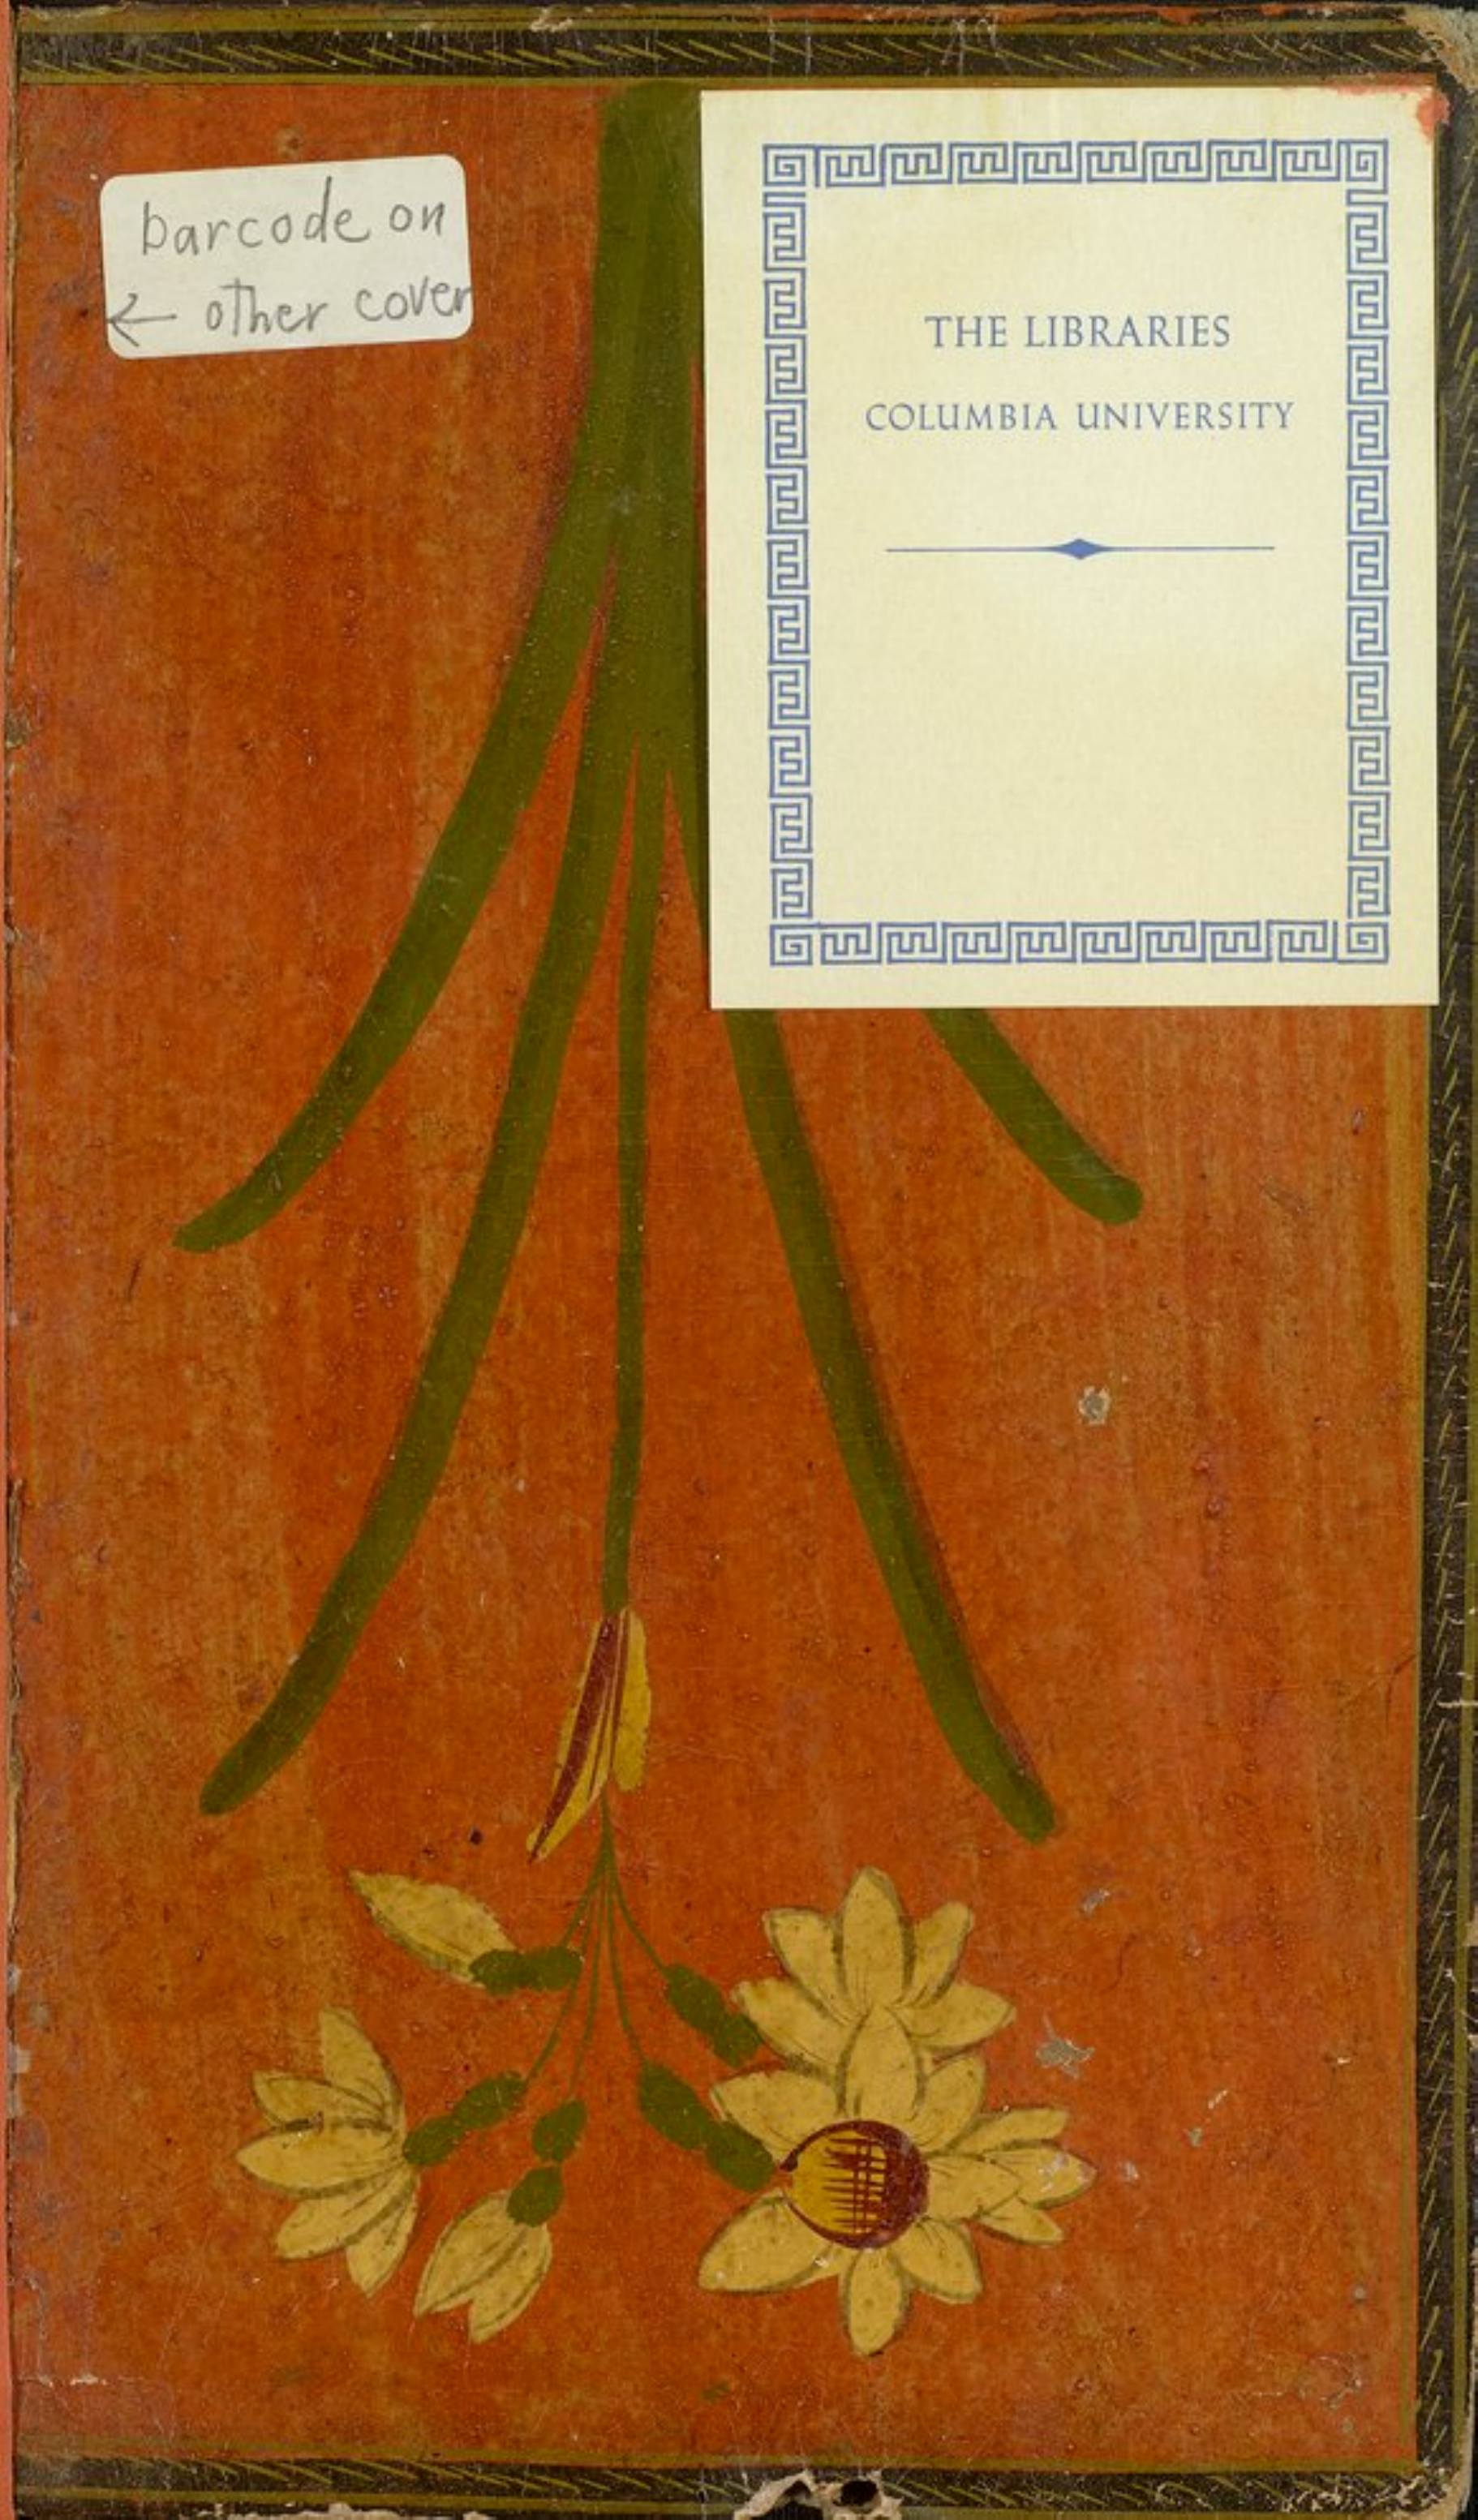 barcode on
← other cover
THE LIBRARIES
COLUMBIA UNIVERSITY